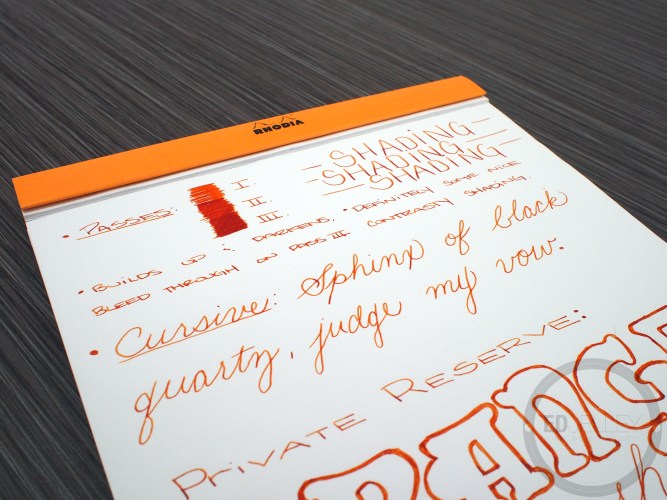 RHODIA
SHADING
SHADING
SHADING
• PASSES: I.
II.
III.
• BUILDS UP & DARKENS. • DEFINITELY SOME NICE
BLEED THROUGH ON PASS III. CONTRASTY SHADING
• Cursive: Sphinx of black
quartz, judge my vow.
PRIVATE RESERVE: